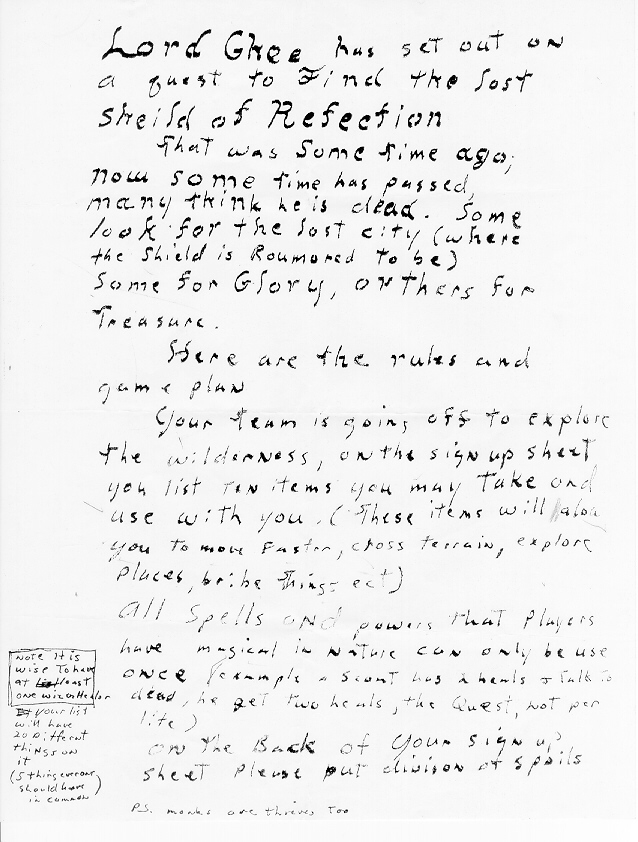 Lord Ghee has set out on
a quest to Find the lost
sheild of Refection
That was some time ago,
now some time has passed,
many think he is dead. Some
look for the lost city (where
the Shield is Roumored to be)
some for Glory, orthers for
Treasure.
Here are the rules and
game plan
Your team is going off to explore
the wilderness, on the sign up sheet
you list ten items you may Take and
use with you. (These items will alow
you to move Faster, cross terrain, explore
places, bribe things ect)
All Spells and powers that Players
have magical in Nature can only be use
once (example a scout has 2 heals + Talk to
dead, he get two heals, the Quest, not per
life)
on the Back of Your sign up
sheet Please put division of spoils
Note It is
wise To have
at least
one wizer Healor
your list
will have
20 Different
things on
it
(5 thing everone
should have
in common)
P.S. monks are thieves Too